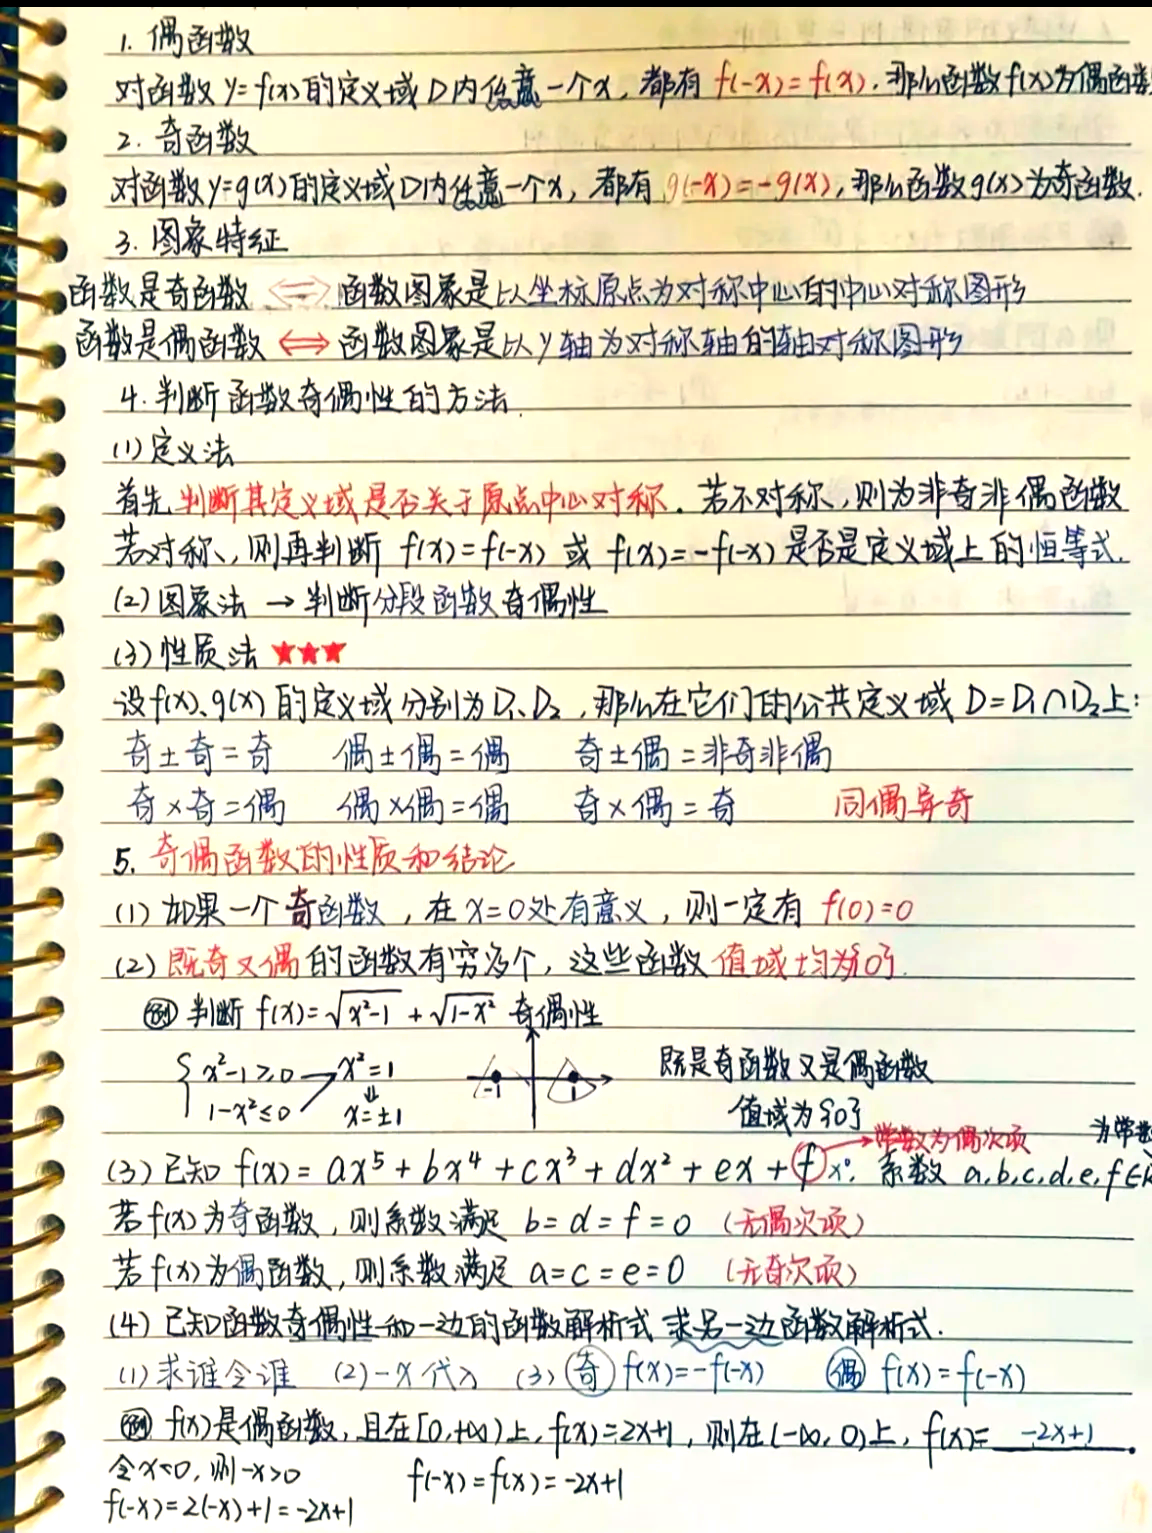 1. 偶函数
对函数 y=f(x)的定义域 D内任意一个x, 都有 f(-x)=f(x). 那么函数f(x)为偶函数
2. 奇函数
对函数y=g(x)的定义域D内任意一个x, 都有 g(-x)=-g(x), 那么函数g(x)为奇函数.
3. 图象特征
函数是奇函数 ⟺ 函数图象是以坐标原点为对称中心的中心对称图形
函数是偶函数 ⟺ 函数图象是以y轴为对称轴的轴对称图形
4. 判断函数奇偶性的方法.
(1) 定义法
首先判断其定义域是否关于原点中心对称. 若不对称, 则为非奇非偶函数
若对称, 则再判断 f(x)=f(-x) 或 f(x)=-f(-x) 是否是定义域上的恒等式.
(2) 图象法 → 判断分段函数奇偶性
(3) 性质法 ★★★
设f(x)、g(x) 的定义域分别为D₁、D₂, 那么在它们的公共定义域 D=D₁∩D₂上:
奇±奇=奇 偶±偶=偶 奇±偶=非奇非偶
奇×奇=偶 偶×偶=偶 奇×偶=奇 同偶异奇
5. 奇偶函数的性质和结论
(1) 如果一个奇函数, 在x=0处有意义, 则一定有 f(0)=0
(2) 既奇又偶的函数有穷多个, 这些函数值域均为{0}.
例 判断 f(x)=√x²-1 + √1-x² 奇偶性
{ x²-1≥0 → x²=1 既是奇函数又是偶函数
1-x²≤0 ⇓ -1 1
x=±1 值域为{0}
常数为偶次项 为常数
(3) 已知 f(x)=ax⁵+bx⁴+cx³+dx²+ex+f x⁰. 系数 a,b,c,d,e,f∈R
若f(x)为奇函数, 则系数满足 b=d=f=0 (无偶次项)
若f(x)为偶函数, 则系数满足 a=c=e=0 (无奇次项)
(4) 已知函数奇偶性和一边的函数解析式 求另一边函数解析式.
(1) 求谁令谁 (2) -x代入 (3) 奇 f(x)=-f(-x) 偶 f(x)=f(-x)
例 f(x)是偶函数, 且在[0,+∞)上, f(x)=2x+1, 则在(-∞,0)上, f(x)= -2x+1 .
令x<0, 则-x>0 f(-x)=f(x)=-2x+1
f(-x)=2(-x)+1=-2x+1